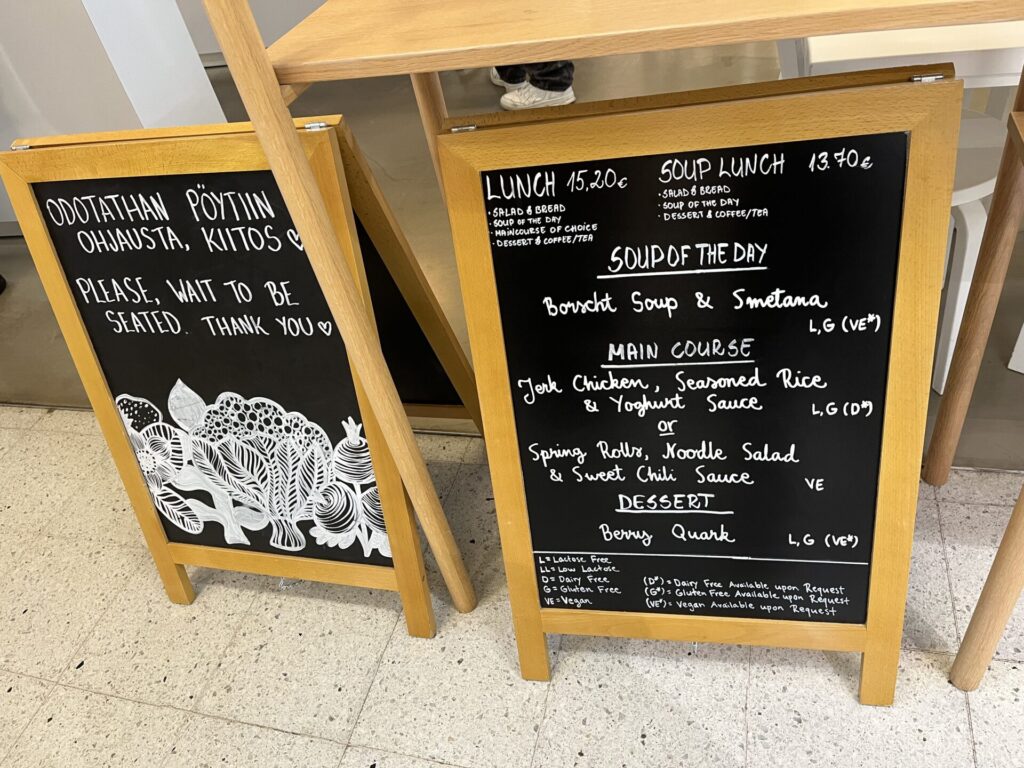 ODOTATHAN PÖYTIIN
OHJAUSTA, KIITOS ♡
PLEASE, WAIT TO BE
SEATED. THANK YOU ♡
LUNCH 15,20€
· SALAD & BREAD
· SOUP OF THE DAY
· MAINCOURSE OF CHOICE
· DESSERT & COFFEE/TEA
SOUP LUNCH 13.70€
· SALAD & BREAD
· SOUP OF THE DAY
· DESSERT & COFFEE/TEA
SOUP OF THE DAY
Borscht Soup & Smetana
L,G (VE*)
MAIN COURSE
Jerk Chicken, Seasoned Rice
& Yoghurt Sauce L,G (D*)
or
Spring Rolls, Noodle Salad
& Sweet Chili Sauce VE
DESSERT
Berry Quark L,G (VE*)
L = Lactose Free
LL = Low Lactose
D = Dairy Free (D*) = Dairy Free Available upon Request
G = Gluten Free (G*) = Gluten Free Available upon Request
VE = Vegan (VE*) = Vegan Available upon Request